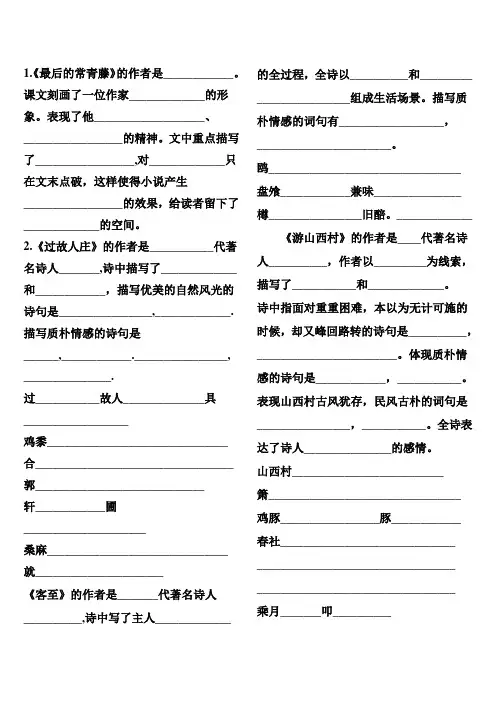 1.《最后的常青藤》的作者是____________。
课文刻画了一位作家_____________的形
象。表现了他___________________、
_________________的精神。文中重点描写
了_________________,对_____________只
在文末点破，这样使得小说产生
_________________的效果，给读者留下了
_____________的空间。
2.《过故人庄》的作者是___________代著
名诗人_______,诗中描写了_____________
和____________，描写优美的自然风光的
诗句是________________,_____________.
描写质朴情感的诗句是
______,____________.________________,
_______________.
过___________故人______________具
__________________
鸡黍_______________________________
合__________________________________
郭_____________________________
轩____________圃
_____________________
桑麻_______________________________
就______________________
《客至》的作者是_______代著名诗人
__________,诗中写了主人_____________
的全过程，全诗以__________和_________
________________组成生活场景。描写质
朴情感的词句有__________________，
_______________________。
鸥_________________________________
盘飧____________兼味_______________
樽________________旧醅。_____________
《游山西村》的作者是____代著名诗
人__________，作者以_________为线索，
描写了___________和_____________。
诗中指面对重重困难，本以为无计可施的
时候，却又峰回路转的诗句是__________，
________________________。体现质朴情
感的诗句是____________，___________。
表现山西村古风犹存，民风古朴的词句是
________________，___________。全诗表
达了诗人_______________的感情。
山西村__________________________
箫_________________________________
鸡豚_________________豚____________
春社______________________________
__________________________________
__________________________________
乘月_______叩__________